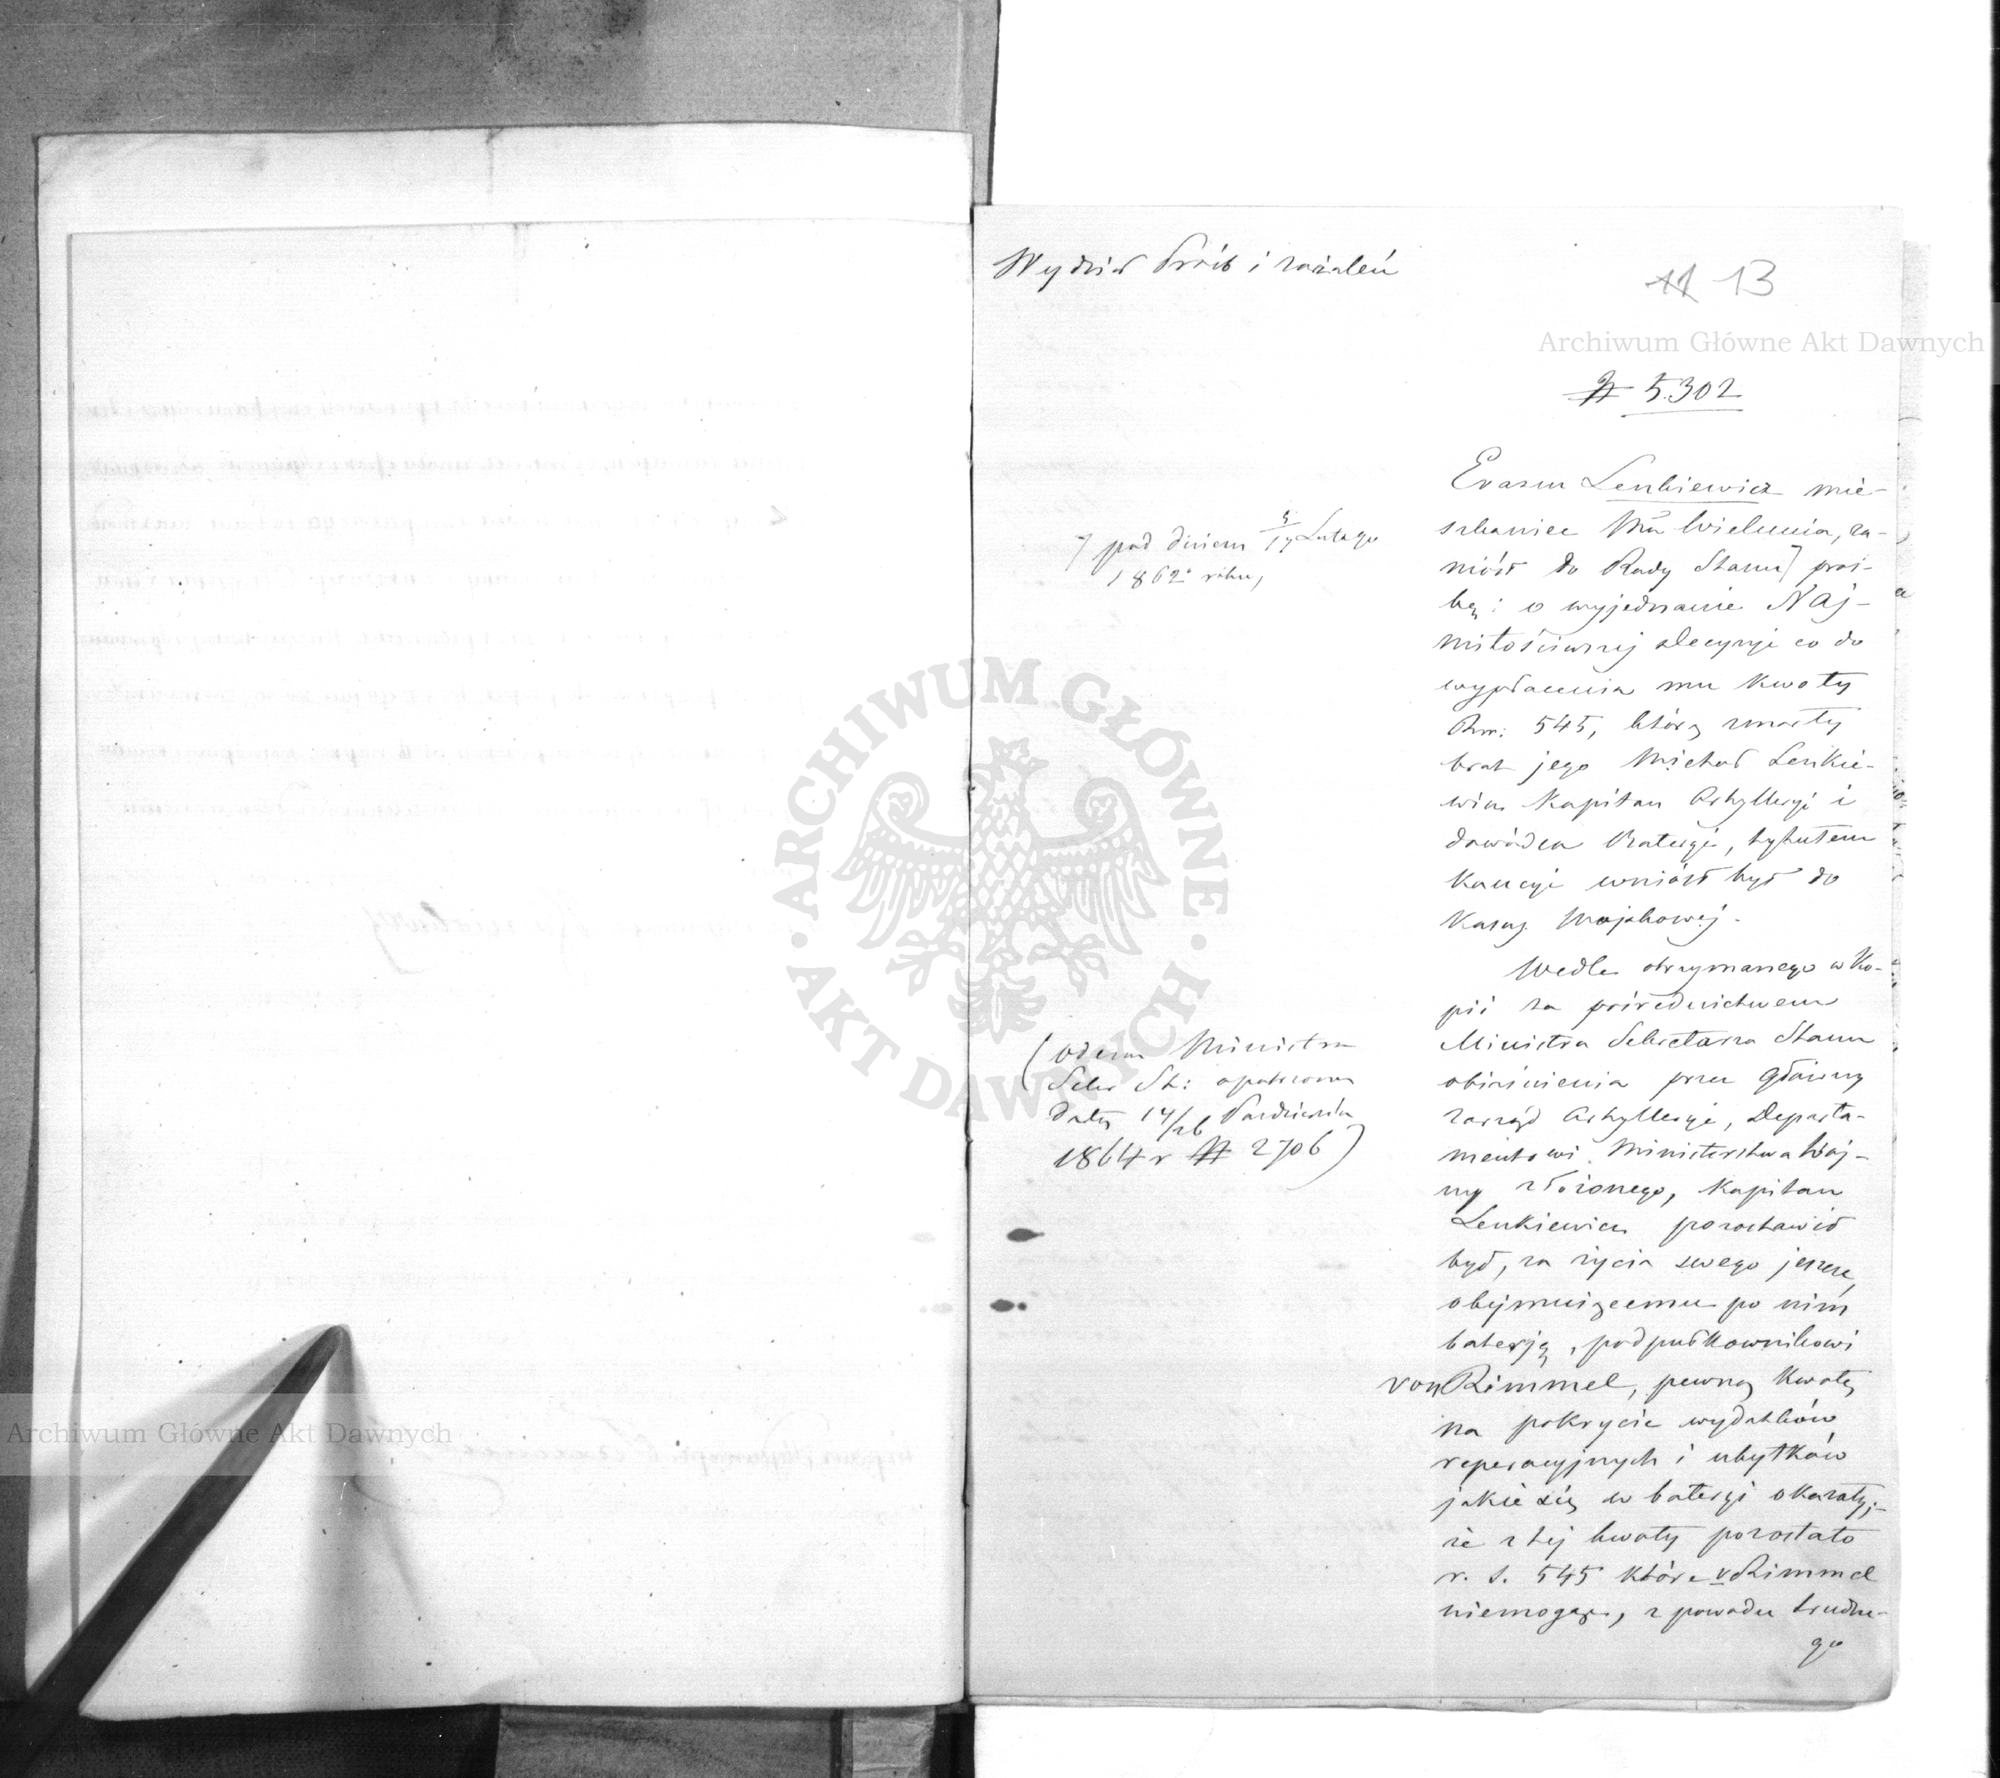 Wydział Próśb i zażaleń
11 13
Archiwum Główne Akt Dawnych
№ 5302
Erazm Lenkiewicz mie-
szkaniec Mta Wielunia, za-
niósł do Rady Stanu ⁊ proś-
bę: o wyjednanie Naj-
miłościwszej decyzyi co do
wypłacenia mu kwoty
Rsr. 545, którą zmarły
brat jego Michał Lenkie-
wicz Kapitan Artylleryi i
dowódca Bateryi, tytułem
Kaucyi wniósł był do
Kassy Wojskowej.
⁊ pod dniem 5/17 Lutego
1862 roku,
Wedle otrzymanego w ko-
pii za pośrednictwem
Ministra Sekretarza Stanu
objaśnienia przez Główny
zarząd Artylleryi, Departa-
mentowi Ministerstwa Woj-
ny złożonego, Kapitan
Lenkiewicz pozostawił
był, za życia swego jeszcze,
obejmującemu po nim
baterją, podpułkownikowi
von Rimmel, pewną kwotę
na pokrycie wydatków
reperacyjnych i ubytków
jakie się w bateryi okazały;-
że z tej kwoty pozostało
r. s. 545 które v Rimmel
niemogąc, z powodu trudne-
go
(odezwa Ministra
Sekr St: opatrzona
datą 14/26 Października
1864 r № 2706)
ARCHIWUM GŁÓWNE
AKT DAWNYCH
Archiwum Główne Akt Dawnych